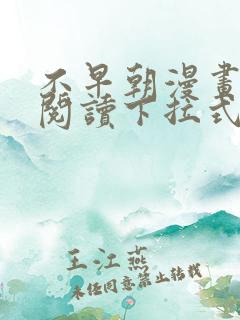 不早朝漫畫
閱讀下拉式
王江燕
未經同意禁止轉載